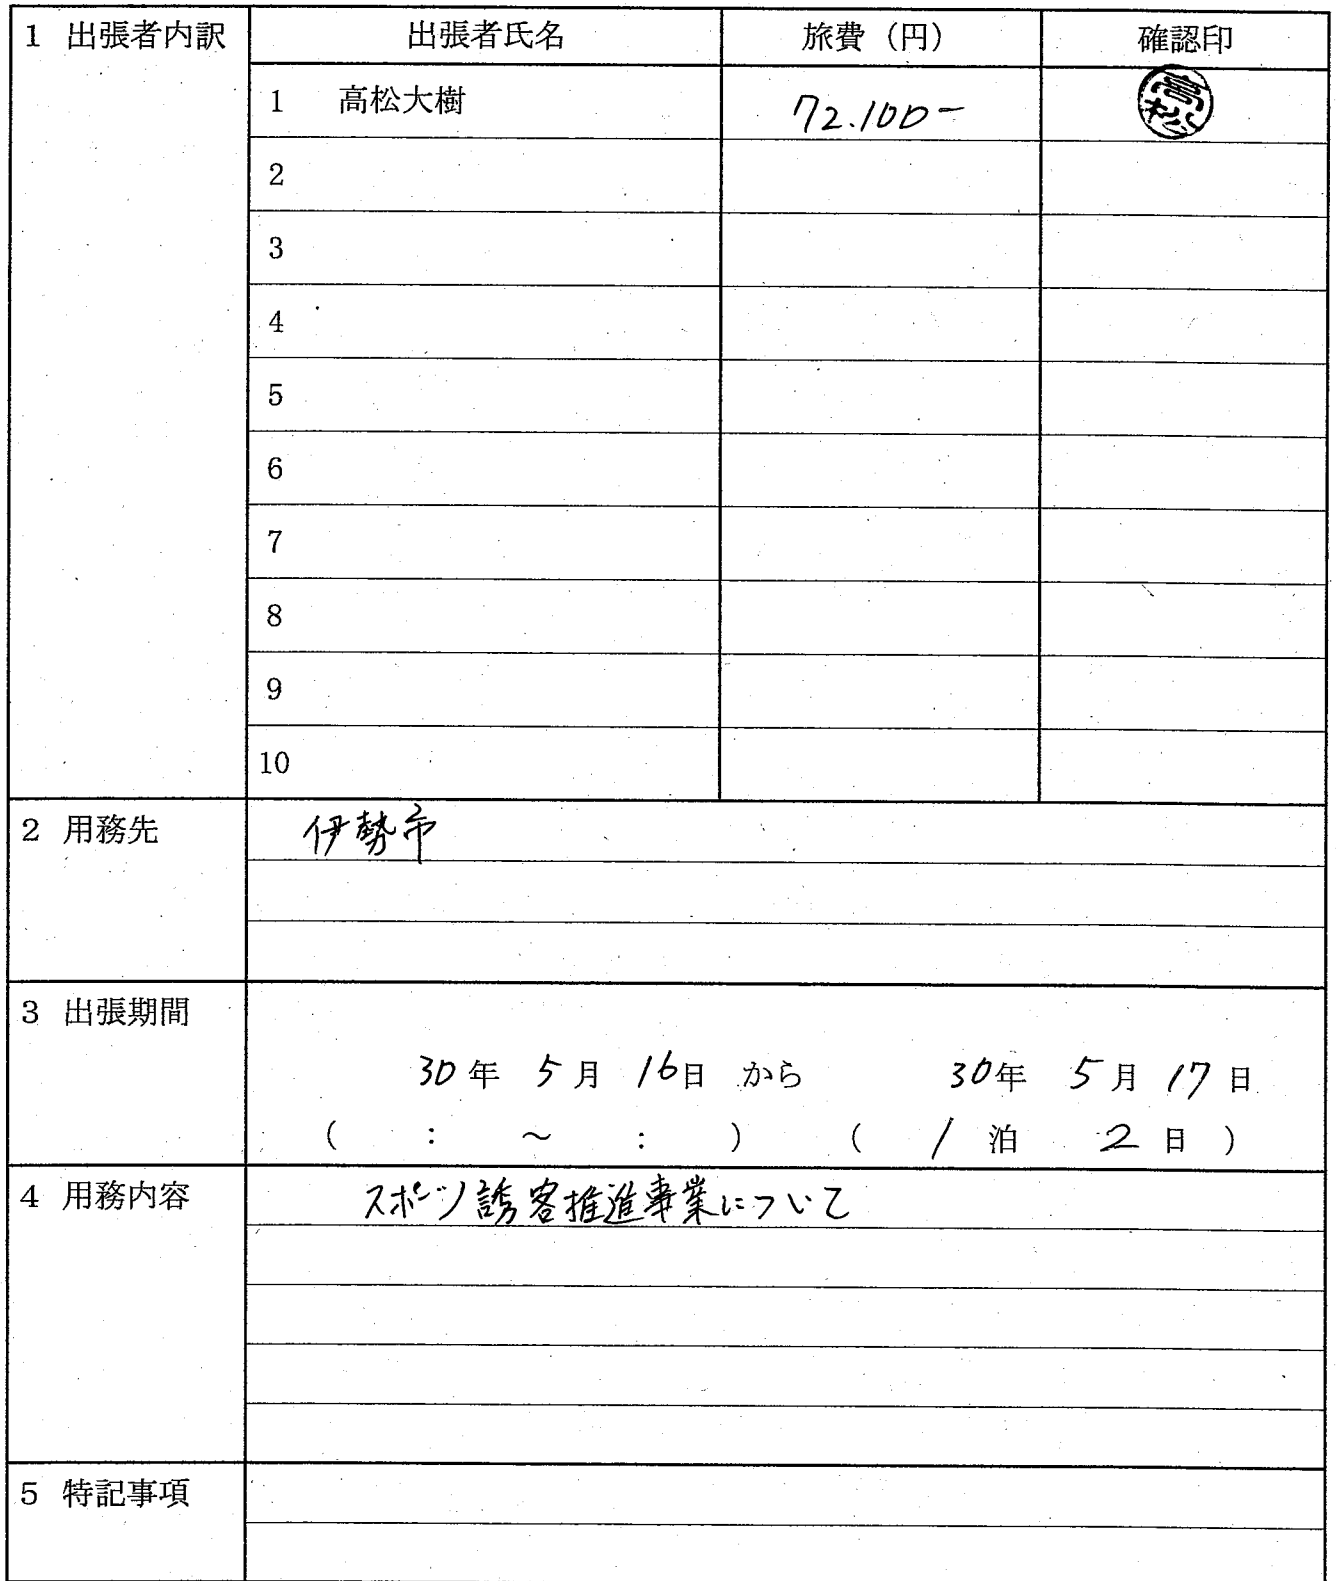 1 出張者内訳 出張者氏名 旅費（円） 確認印
1 高松大樹 72.100- 高松
2
3
4
5
6
7
8
9
10
2 用務先 伊勢市
3 出張期間
30年 5月 16日 から 30年 5月 17日
( : ～ : ) ( 1泊 2日 )
4 用務内容 スポーツ誘客推進事業について
5 特記事項